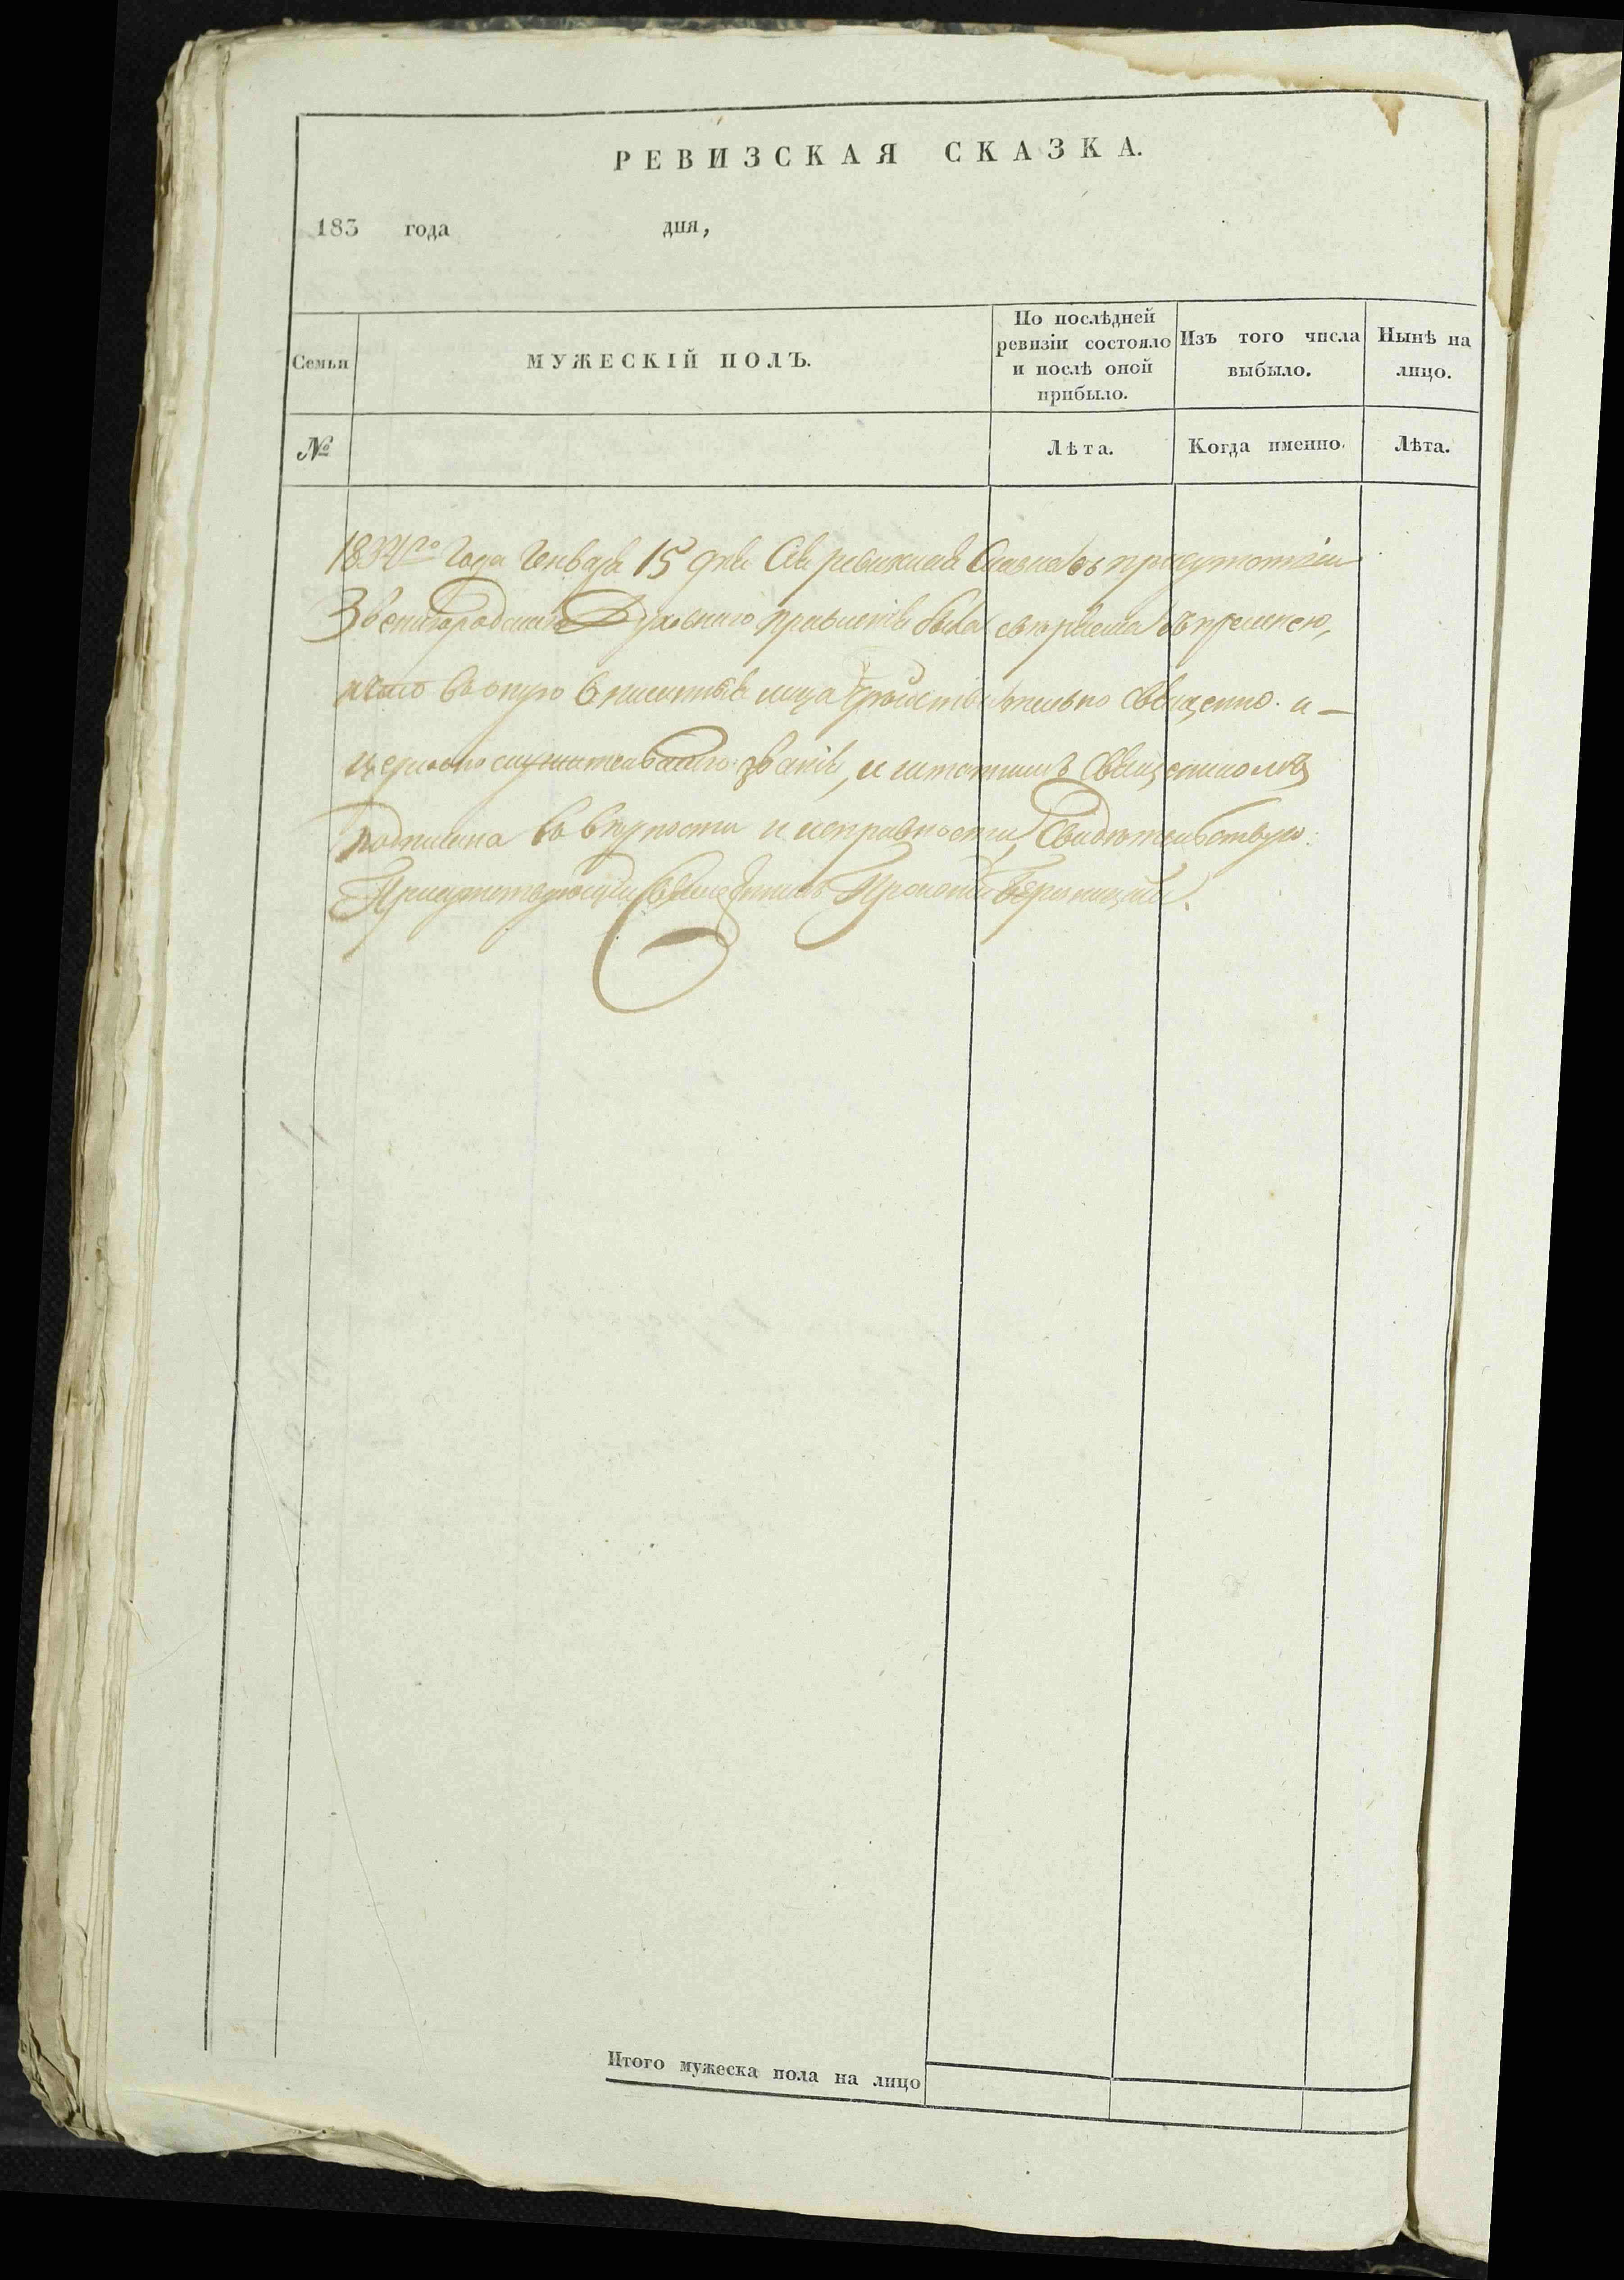 РЕВИЗСКАЯ СКАЗКА.
183 года дня,
Семьи
МУЖЕСКІЙ ПОЛЪ.
По послѣдней ревизіи состояло и послѣ оной прибыло.
Изъ того числа выбыло.
Нынѣ на лицо.
№
Лѣта.
Когда именно.
Лѣта.
1834го Года Генваря 15 дня Сія ревизская Сказка въ присутствіи
Звенигородскаго Духовнаго правленія была свѣряема съ прежнею,
и что въ оную вписанныя лица дѣйствительно Священно- и
церковно служительскаго званія, и штатнымъ Священникомъ
подписана въ вѣрности и исправности, Свидѣтельствую:
Присутствующій Священникъ Прокопій
Итого мужеска пола на лицо